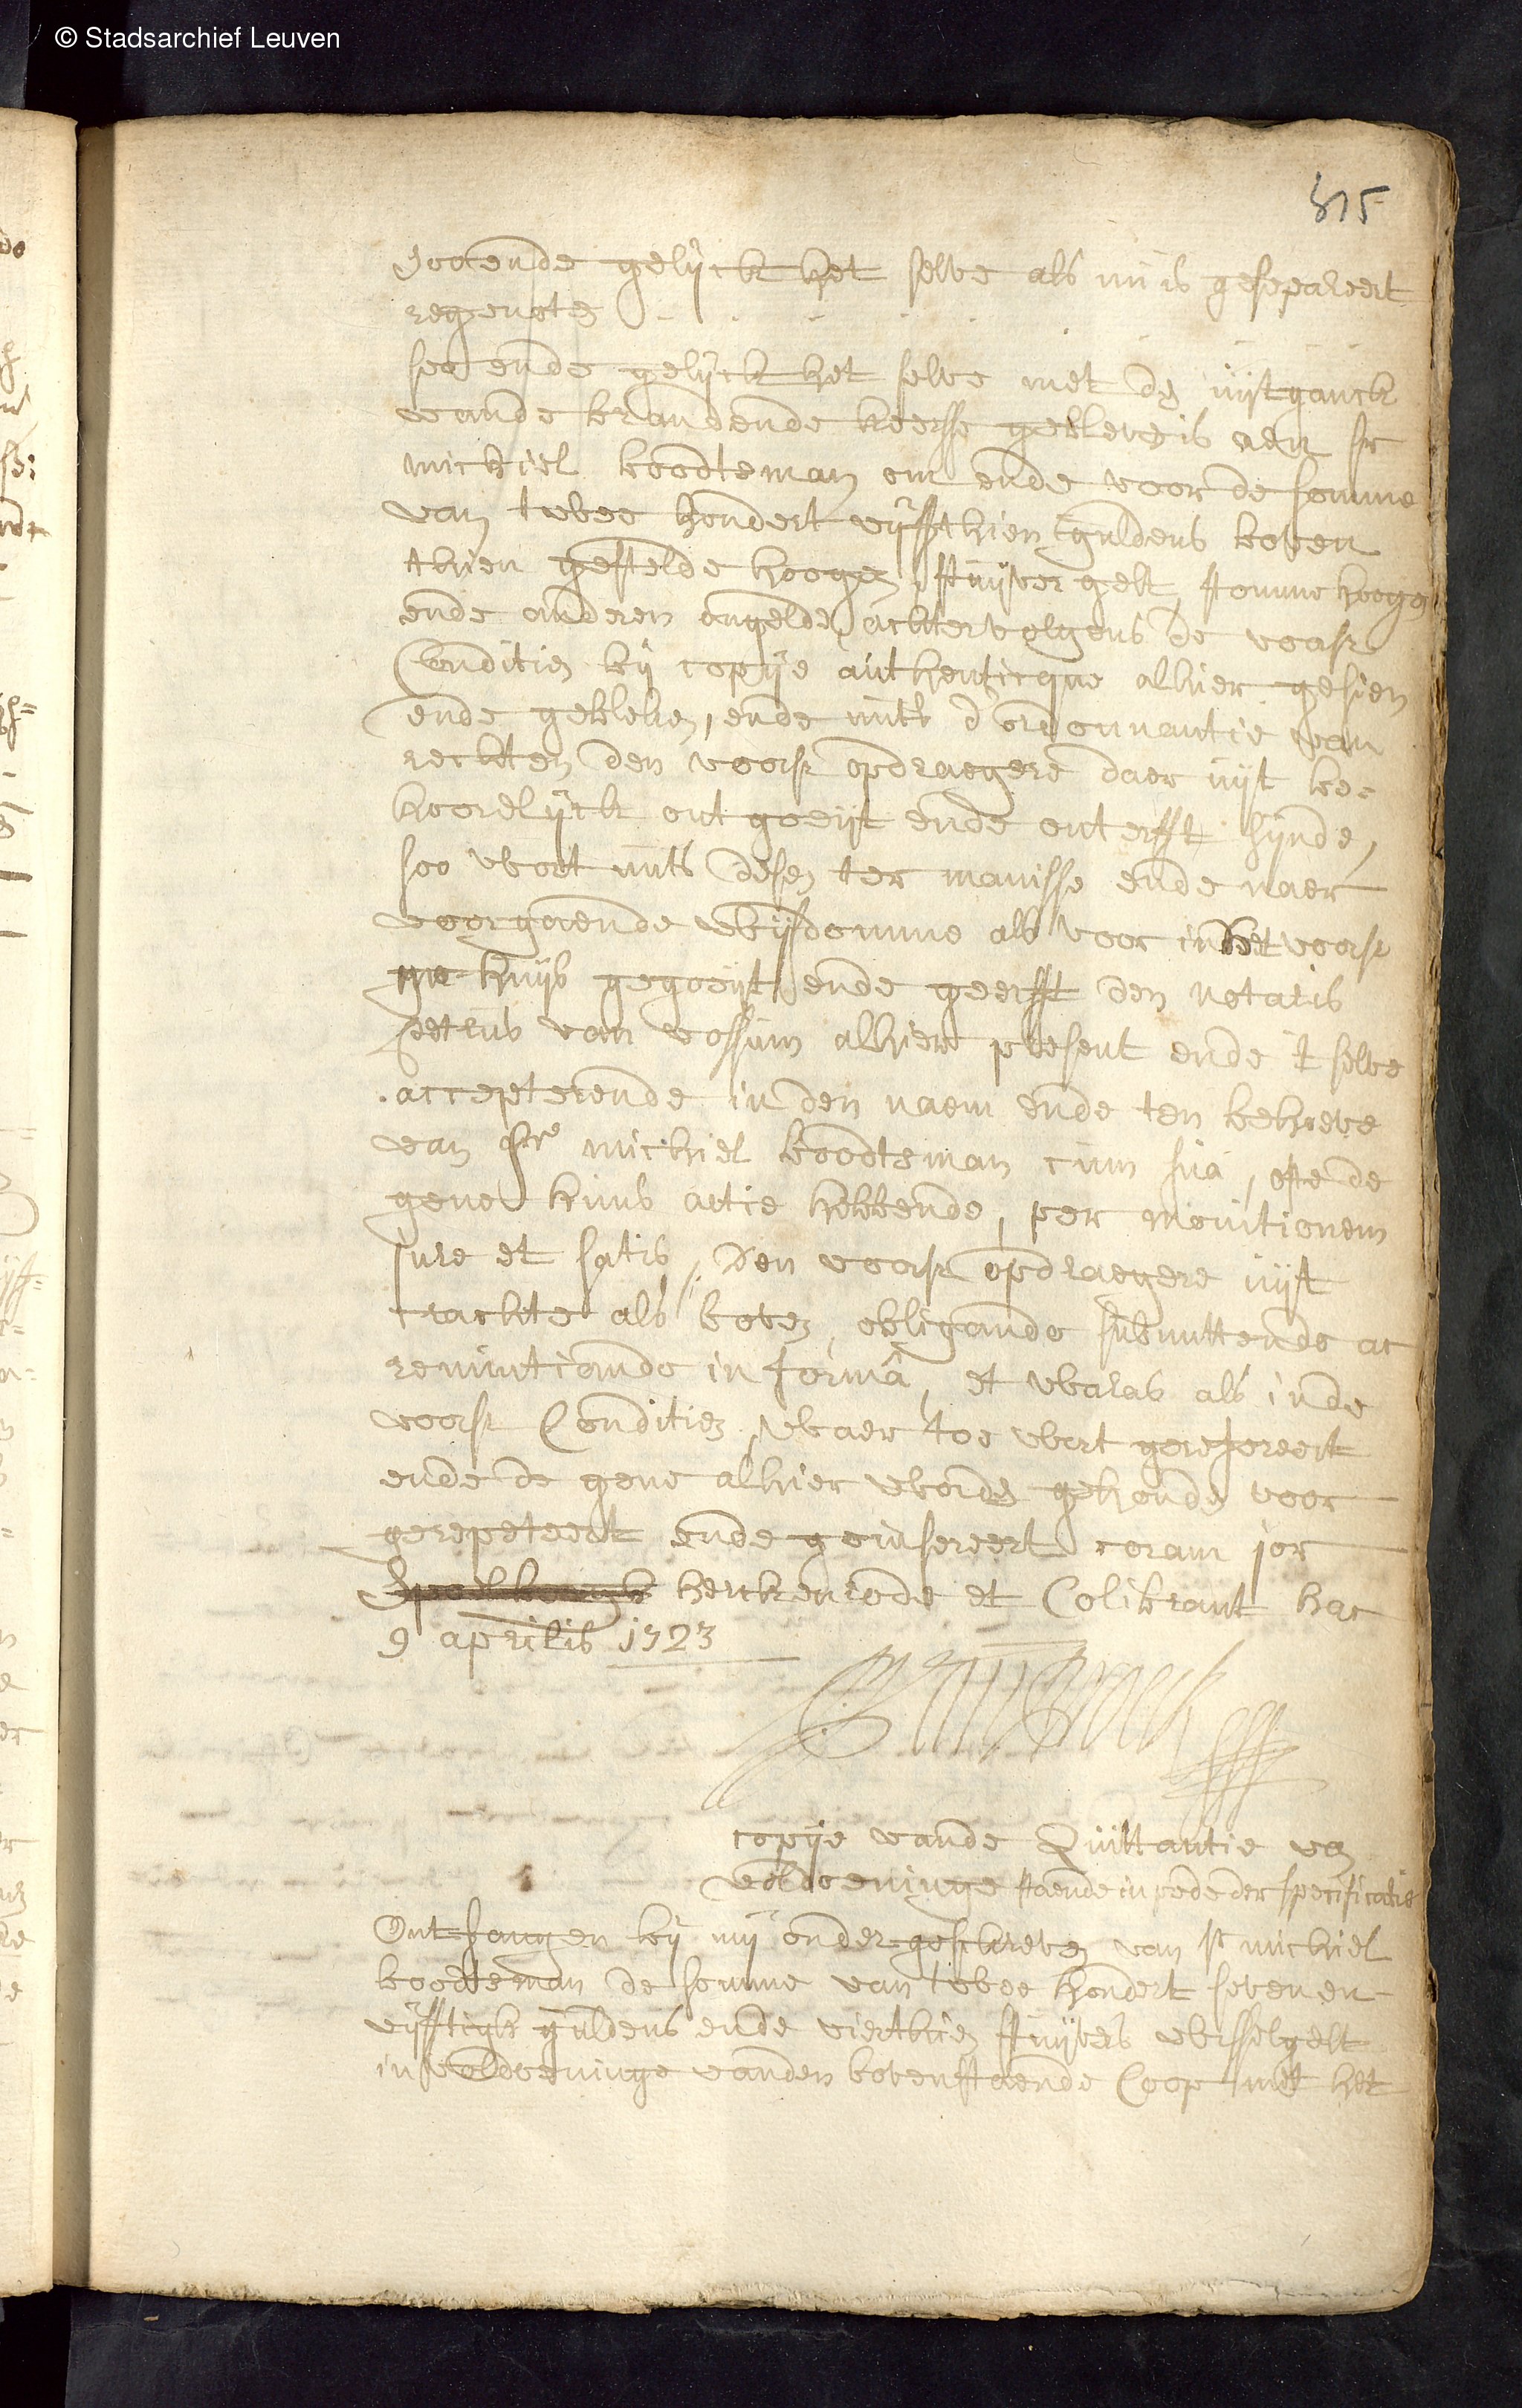 © Stadsarchief Leuven
315
Sooende gelijck het selve als nu is gesepareert
regenote
soo ende gelijck het selve met den uijtganck
vande brandende keersse gebleven is aen sr
michiel boodteman om ende voor de somme
van twee hondert vijffthien guldens boven
thien gestelde hoogen stuijver gelt stomme hooge
ende anderen ongelden achtervolgens de voorsr
Conditien bij copije authenticque alhier gesien
ende gebleken, ende mits d'ordonnantie van
rechten den voorsr opdraegere daer uijt be-
hoorelijck ontgoeijt ende onterfft sijnde,
soo wort mits desen ter manisse ende naer
voorgaende wijsdomme als voor in het voorsr
huijs gegoeijt ende geerfft den notaris
Petrus van vossum alhier present ende t selve
accepterende in den naem ende ten behoeve
van sr michiel boodteman cum suâ, ofte de
gene huns actie hebbende, per monitionem
jure et satis, Den voorsr opdraegere uijt
crachte als boven, obligando submittendo ac
renuntiando in formâ, et waras als inde
voorsr Conditien, waer toe wort gerefereert
ende de gene alhier worden gehouden voor
gerepeteert ende geinsereert coram jor
herckenrode et Colibrant hac
9 aprilis 1723
copije vande Quittantie van
voldoeninge staende in pede der specificatie
Ontfangen bij mij onderges​chreven van sr michiel
boodteman de somme van twee hondert seven en
vijfftigh guldens ende vierthien stuijvers wisselgelt
in voldoeninge vanden bovenstaende Coop met het